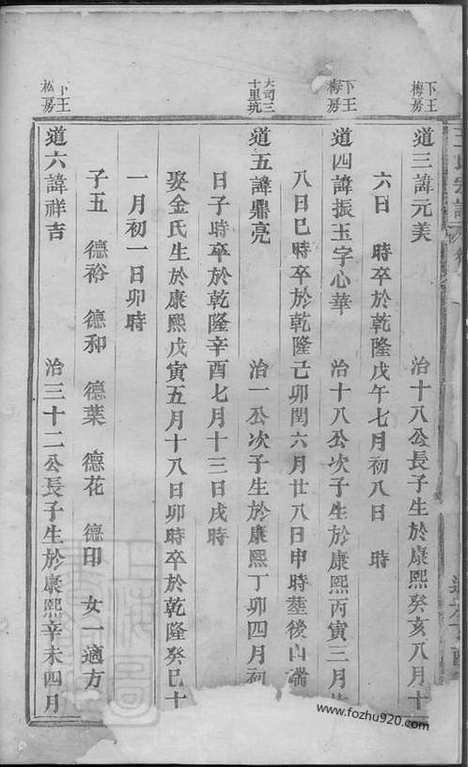 下王梅房
道三諱元美　治十八公長子生於康熙癸亥八月十
六日　時卒於乾隆戊午七月初八日　時
下王梅房
道四諱振玉字心華　治十八公次子生於康熙丙寅三月
八日巳時卒於乾隆己卯閏六月廿八日申時塟後山
大司三十里坑
道五諱鼎亮　治一公次子生於康熙丁卯四月初
日子時卒於乾隆辛酉七月十三日戌時
娶金氏生於康熙戊寅五月十八日卯時卒於乾隆癸巳十
一月初一日卯時
子五　德裕　德和　德葉　德花　德印　女一適方
下王松房
道六諱祥吉　治三十二公長子生於康熙辛未四月
www.fozhu920.com